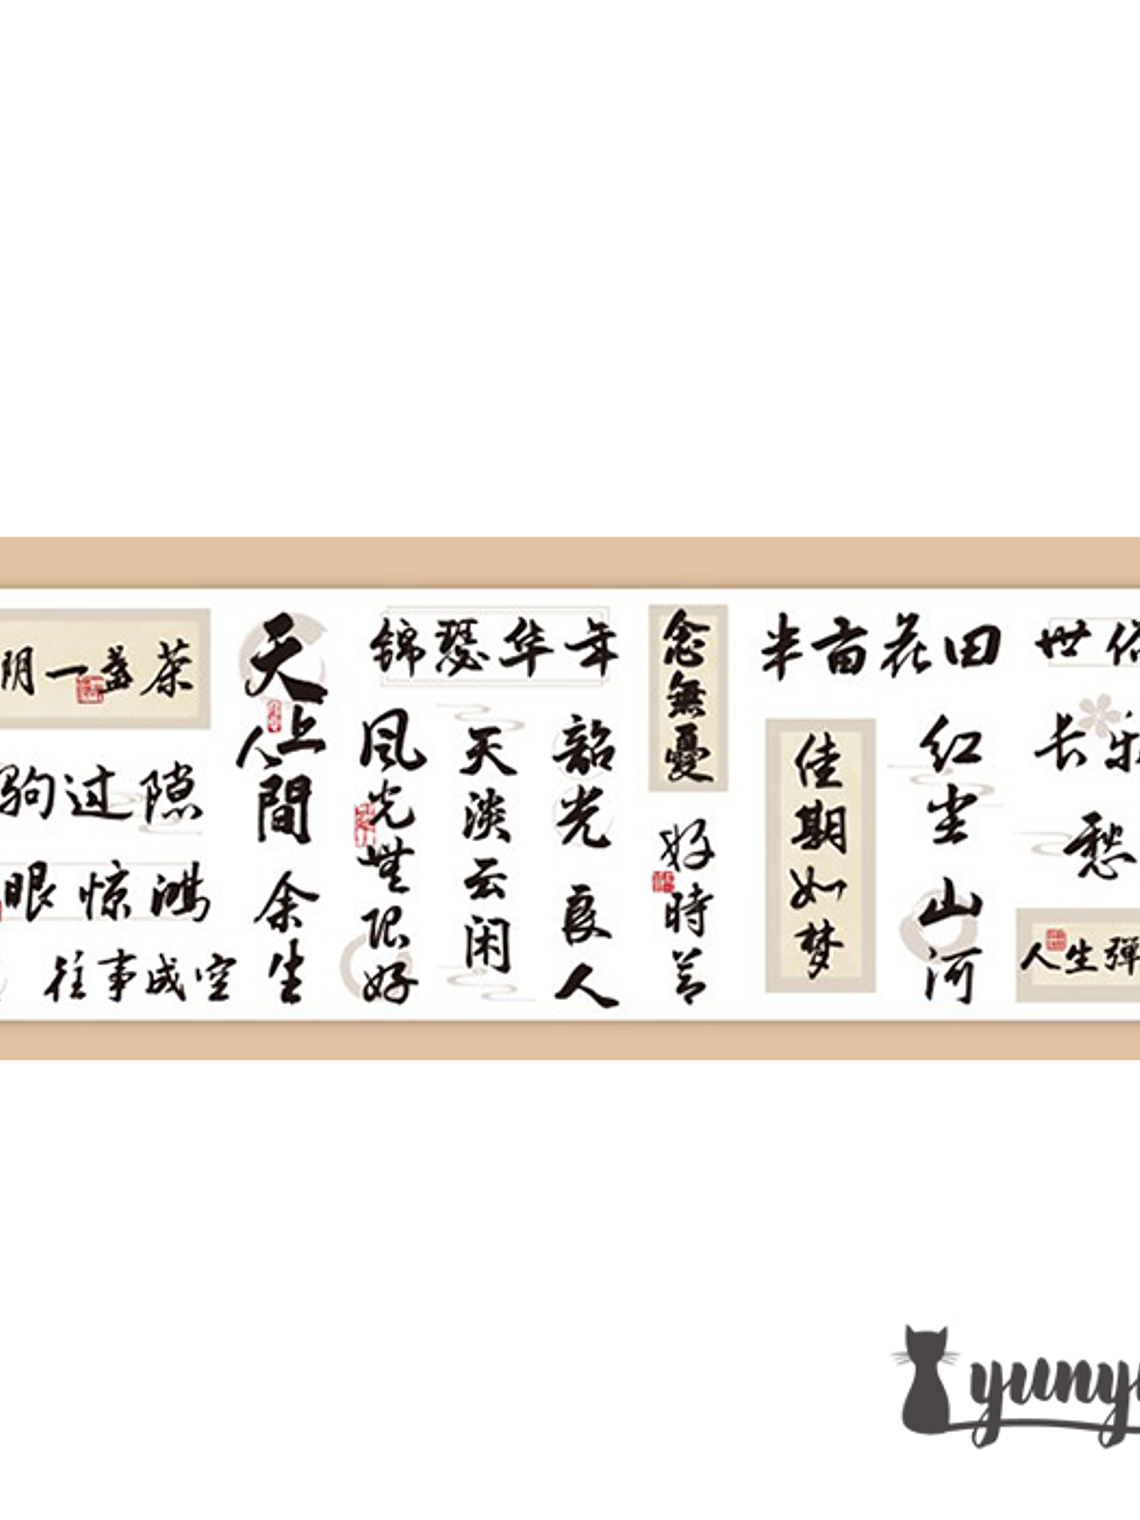 阴一盏茶
驹过隙
眼惊鸿
往事成空
天上
人間
余生
锦瑟华年
风光無限好
天淡云闲
韶光
良人
念無憂
好時节
半亩花田
佳期如梦
红尘山河
世俗
长乐
愁
人生彈
yuny